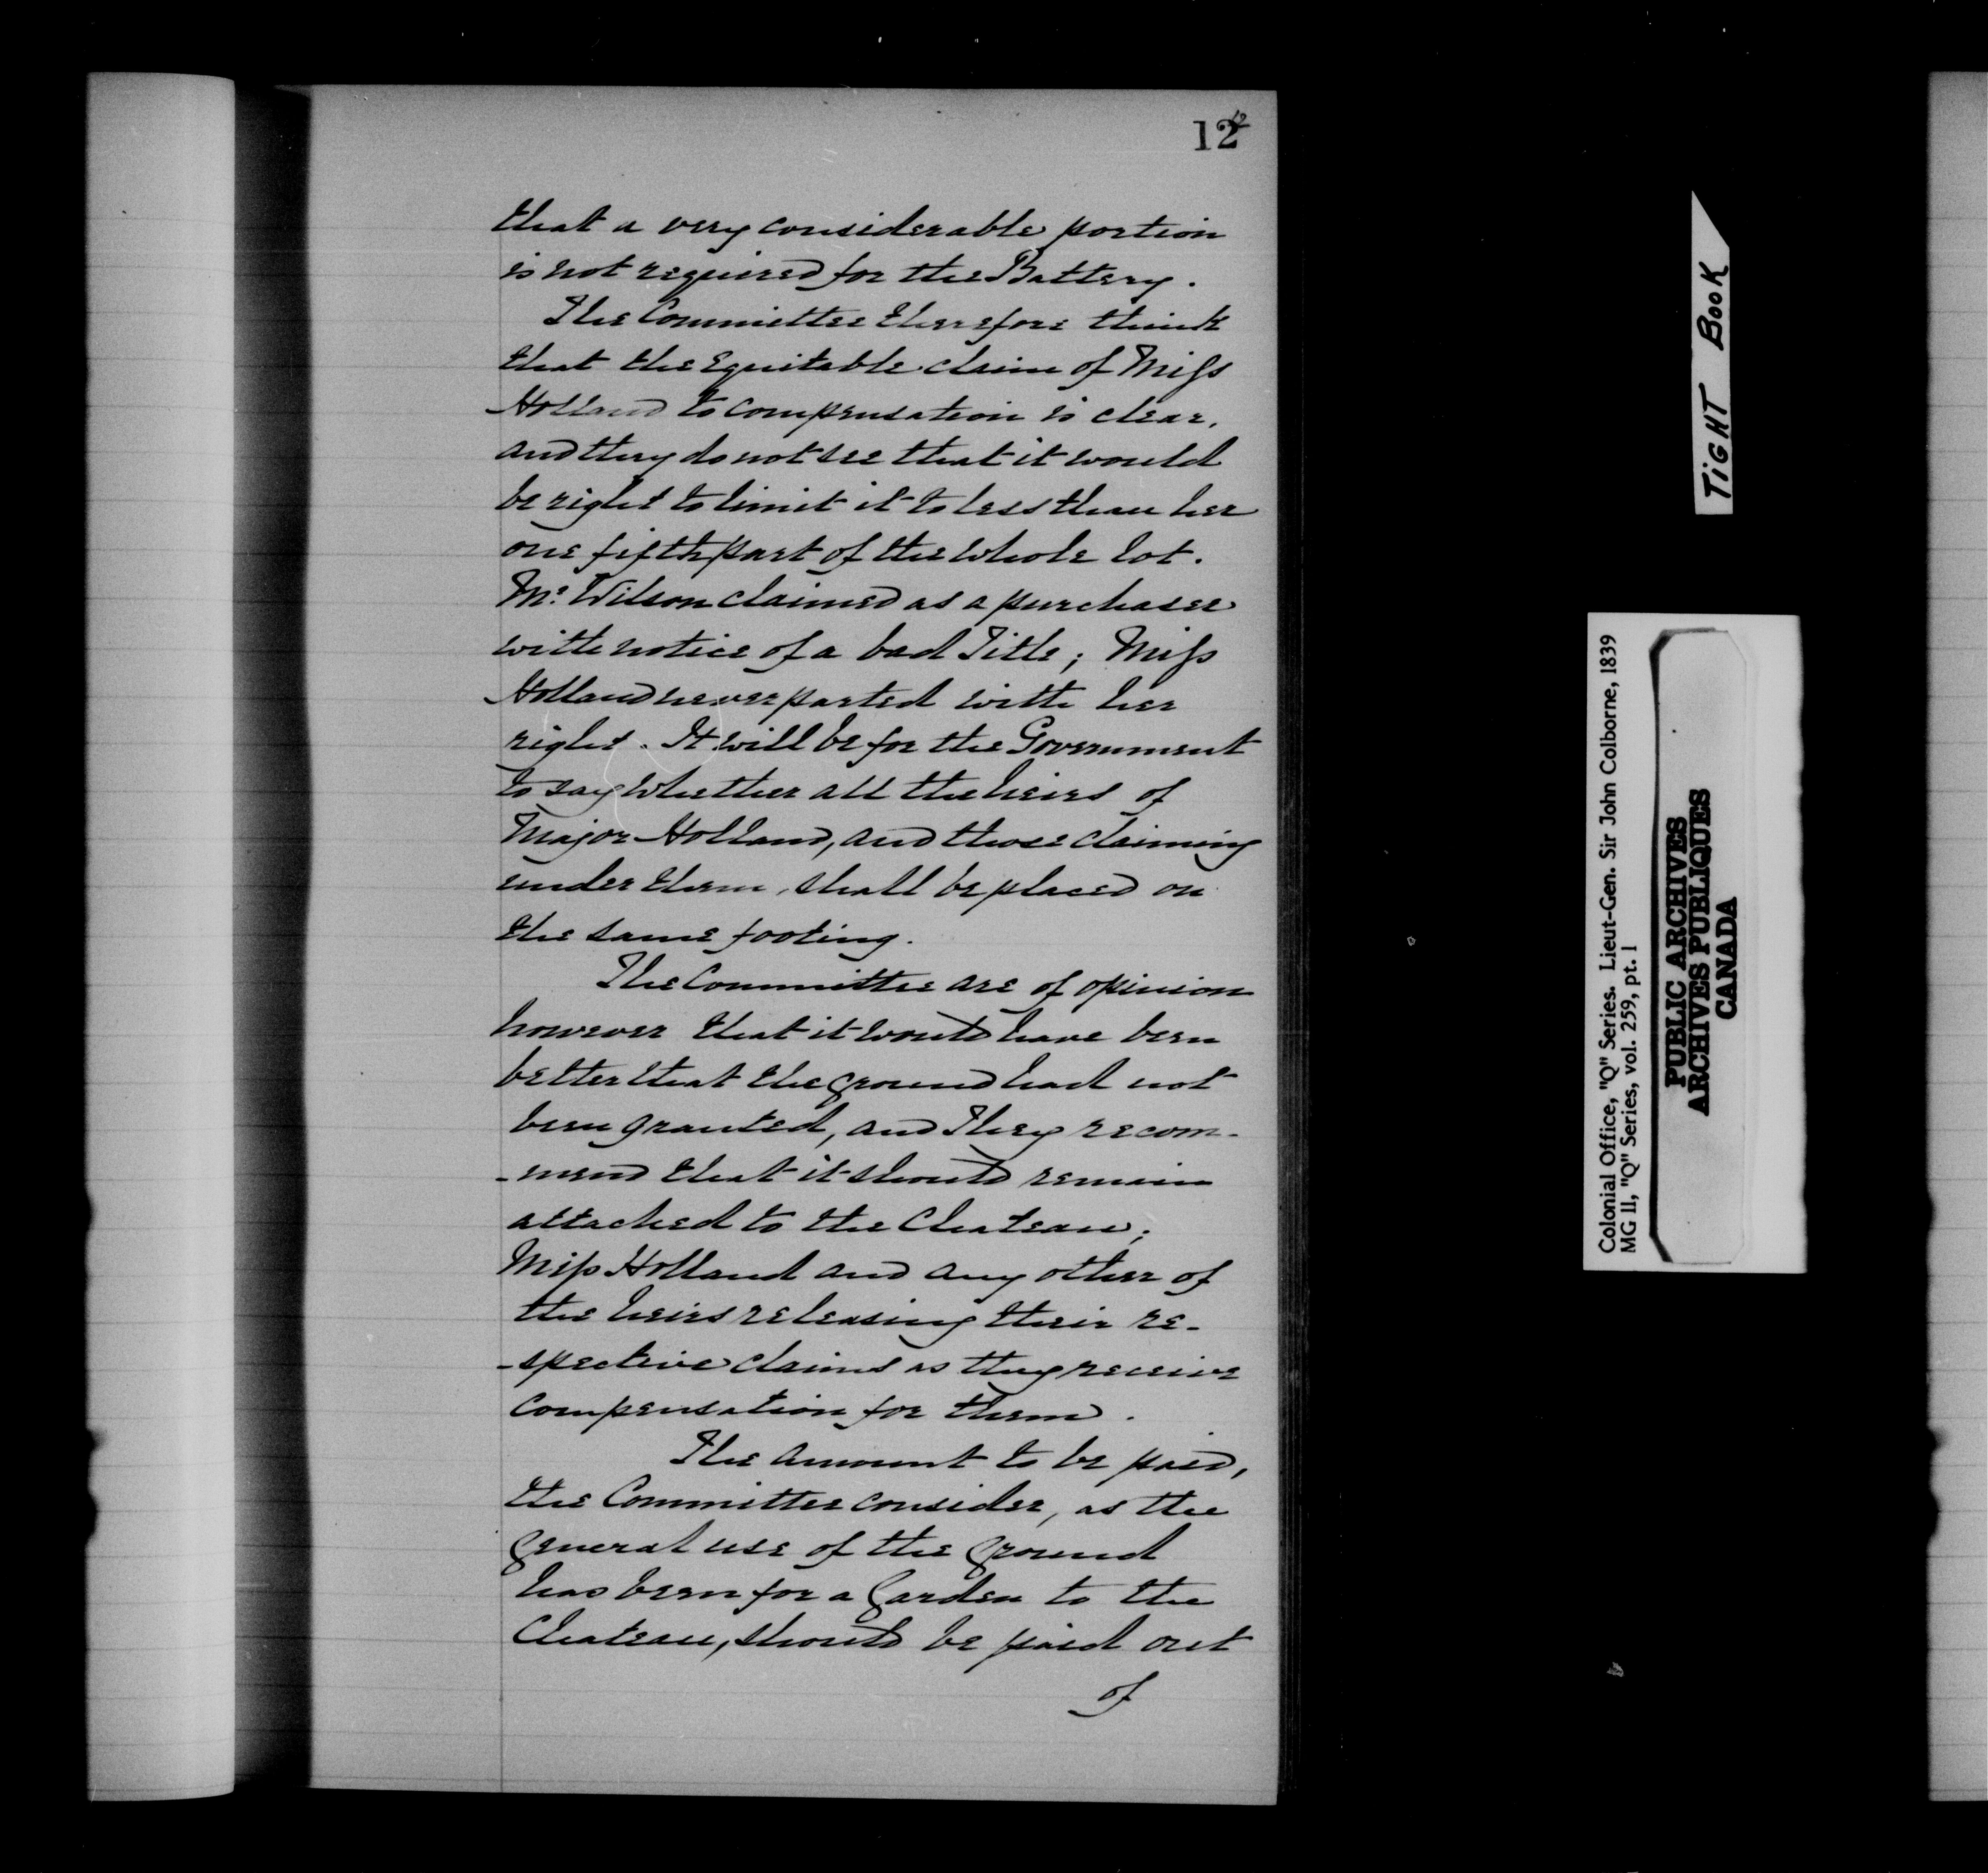 12
12
that a very considerable portion
is not required for the Battery.
The Committee therefore think
that the Equitable claim of Miss
Holland to compensation is clear,
and they do not see that it would
be right to limit it to less than her
one fifth part of the whole lot.
Mr. Wilson claimed as a purchaser
with notice of a bad Title; Miss
Holland never parted with her
right. It will be for the Government
to say whether all the heirs of
Major Holland, and those claiming
under them, shall be placed on
the same footing.
The Committee are of opinion
however that it would have been
better that the ground had not
been granted, and they recom-
-mend that it should remain
attached to the Chateau;
Miss Holland and any other of
the heirs releasing their re-
-spective claims as they receive
compensation for them.
The amount to be paid,
the Committee consider, as the
general use of the ground
has been for a Garden to the
Chateau, should be paid out
of
TIGHT BOOK
Colonial Office, "Q" Series. Lieut-Gen. Sir John Colborne, 1839
MG 11, "Q" Series, vol. 259, pt. 1
PUBLIC ARCHIVES
ARCHIVES PUBLIQUES
CANADA